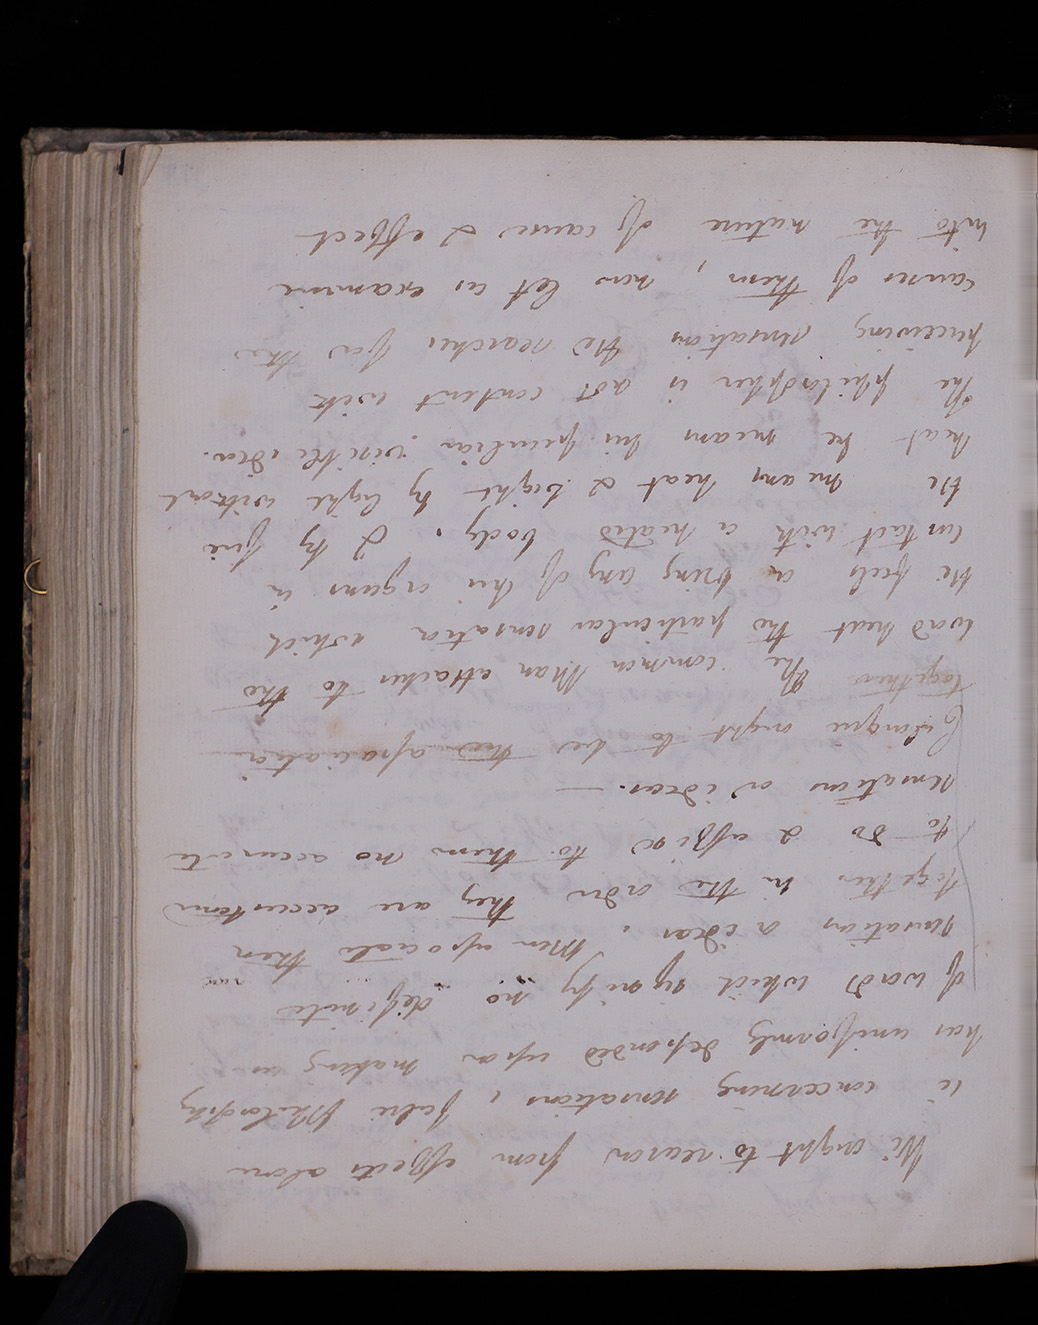 We ought to reason from effects alone
ie concerning sensations, false Philosophy
has uniformly depended upon making use
of words which signify no definite
sensations or ideas. Men associate them
together in the order they are accustomed
to do & affix to them no accurate
sensations or ideas. —
Language ought to be the association
together The common Man attaches to the
word heat the particular sensation which
He feels on bring any of his organs in
contact with a heated body. & by fire
He means heat & light by light without
heat he means his peculiar visible idea.
The philosopher is not content with
perceiving sensations He searches for the
causes of them, now let us examine
into the nature of cause & effect